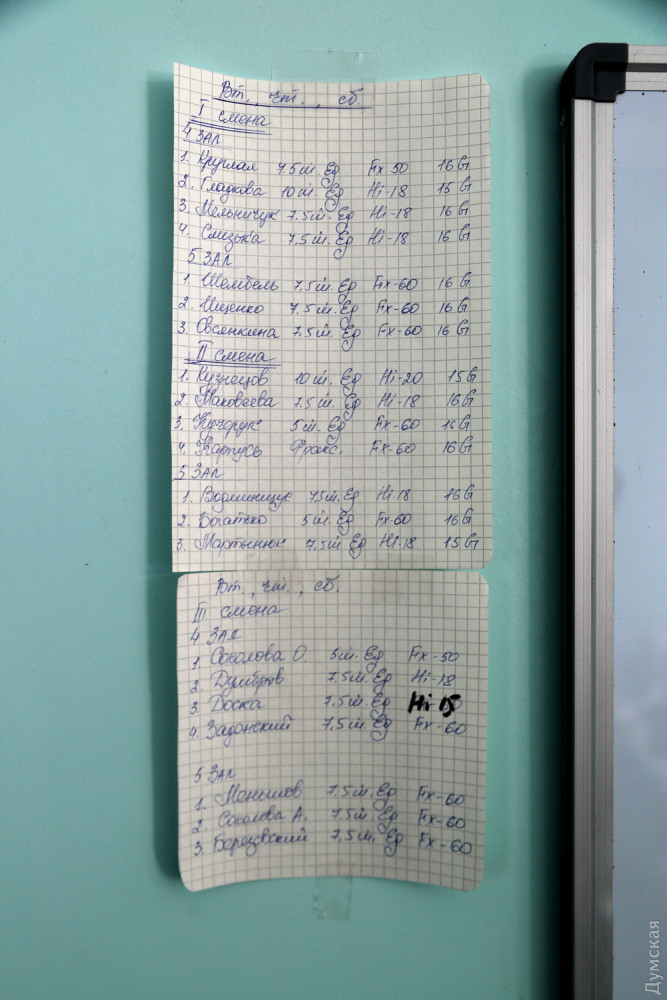 Вт., чт., сб.
I смена
4 ЗАЛ
1. Круглая 7.5 ш. Ед Fx-50 16 G
2. Гладкова 10 ш. Ед Hi-18 15 G
3. Мельничук 7.5 ш. Ед Hi-18 16 G
4. Слизька 7,5 ш. Ед Hi-18 16 G
5 ЗАЛ
1. Шембель 7.5 ш. Ед Fx-60 16 G
2. Ищенко 7.5 ш. Ед Fx-60 16 G
3. Овсянкина 7.5 ш. Ед Fx-60 16 G
II смена
1. Кузнецов 10 ш. Ед Hi-20 15 G
2. Маковеева 7.5 ш. Ед Hi-18 16 G
3. 5 ш. Ед Fx-60 16 G
4. Картусь Фракс. Fx-60 16 G
5 ЗАЛ
1. 7.5 ш. Ед Hi-18 16 G
2. Богатько 5 ш. Ед Fx-60 16 G
3. Мартынюк 7.5 ш. Ед Hi-18 15 G
Вт., чт., сб.
III смена
4 ЗАЛ
1. Соколова О. 5 ш. Ед Fx-50
2. 7.5 ш. Ед Hi-18
3. Доска 7.5 ш. Ед Hi 15
4. Задонский 7,5 ш. Ед Fx-60
5 ЗАЛ
1. Меньшов 7.5 ш. Ед Fx-60
2. Соколова А. 7.5 ш. Ед Fx-60
3. Березовский 7,5 ш. Ед Fx-60
Думская